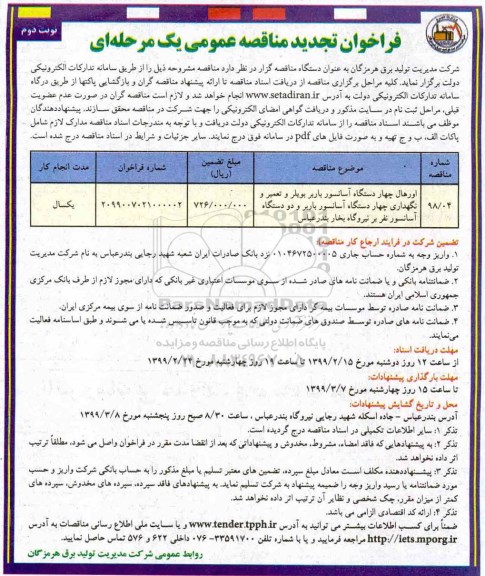 نوبت دوم
فراخوان تجدید مناقصه عمومی یک مرحله‌ای
شرکت مدیریت تولید برق هرمزگان به عنوان دستگاه مناقصه گزار در نظر دارد مناقصه مشروحه ذیل را از طریق سامانه تدارکات الکترونیکی
دولت برگزار نماید. کلیه مراحل برگزاری مناقصه از دریافت اسناد مناقصه تا ارائه پیشنهاد مناقصه گران و بازگشایی پاکتها از طریق درگاه
سامانه تدارکات الکترونیکی دولت به آدرس www.setadiran.ir انجام خواهد شد و لازم است مناقصه گران در صورت عدم عضویت
قبلی، مراحل ثبت نام در سایت مذکور و دریافت گواهی امضای الکترونیکی را جهت شرکت در مناقصه محقق سازند. پیشنهاددهندگان
موظف می باشند اسناد مناقصه را از سامانه تدارکات الکترونیکی دولت دریافت و با توجه به مندرجات اسناد مناقصه مدارک لازم شامل
پاکات الف، ب و ج تهیه و به صورت فایل های pdf در سامانه فوق درج نمایند. سایر جزئیات و شرایط در اسناد مناقصه درج شده است.
شماره مناقصه | موضوع مناقصه | مبلغ تضمین (ریال) | شماره فراخوان | مدت انجام کار
۹۸/۰۴ | اورهال چهار دستگاه آسانسور باربر بویلر و تعمیر و نگهداری چهار دستگاه آسانسور باربر و دو دستگاه آسانسور نفر بر نیروگاه بخار بندرعباس | ۷۲۶/۰۰۰/۰۰۰ | ۲۰۹۹۰۰۷۰۲۱۰۰۰۰۰۲ | یکسال
تضمین شرکت در فرایند ارجاع کار مناقصه:
۱. واریز وجه به شماره حساب جاری ۰۱۰۴۶۷۲۵۰۰۰۰۵ نزد بانک صادرات ایران شعبه شهید رجایی بندرعباس به نام شرکت مدیریت
تولید برق هرمزگان.
۲. ضمانتنامه بانکی و یا ضمانت نامه های صادر شده از سوی موسسات اعتباری غیر بانکی که دارای مجوز لازم از طرف بانک مرکزی
جمهوری اسلامی ایران هستند.
۳. ضمانت نامه صادره توسط موسسات بیمه گر دارای مجوز لازم برای فعالیت و صدور ضمانت نامه از سوی بیمه مرکزی ایران.
۴. ضمانت نامه های صادره توسط صندوق های ضمانت دولتی که به موجب قانون تاسیس شده یا می شوند و طبق اساسنامه فعالیت
می‌نمایند.
مهلت دریافت اسناد:
از ساعت ۱۲ روز دوشنبه مورخ ۱۳۹۹/۲/۱۵ تا ساعت ۱۹ روز چهارشنبه مورخ ۱۳۹۹/۲/۲۴
مهلت بارگذاری پیشنهادات:
تا ساعت ۱۵ روز چهارشنبه مورخ ۱۳۹۹/۳/۷
محل و تاریخ گشایش پیشنهادات:
آدرس بندرعباس - جاده اسکله شهید رجایی نیروگاه بندرعباس ، ساعت ۸/۳۰ صبح روز پنجشنبه مورخ ۱۳۹۹/۳/۸
تذکر ۱: سایر اطلاعات تکمیلی در اسناد مناقصه درج گردیده است.
تذکر ۲: به پیشنهادهایی که فاقد امضاء، مشروط، مخدوش و پیشنهاداتی که بعد از انقضا مدت مقرر در فراخوان واصل می شود، مطلقاً ترتیب
اثر داده نخواهد شد.
تذکر ۳: پیشنهاددهنده مکلف است معادل مبلغ سپرده، تضمین های معتبر تسلیم یا مبلغ مذکور را به حساب بانکی شرکت واریز و حسب
مورد ضمانتنامه یا رسید واریز وجه را ضمیمه پیشنهاد به شرکت تسلیم نماید. به پیشنهادهای فاقد سپرده، سپرده های مخدوش، سپرده های
کمتر از میزان مقرر، چک شخصی و نظایر آن ترتیب اثر داده نخواهد شد.
تذکر ۴: ارائه کد اقتصادی الزامی می باشد.
ضمناً برای کسب اطلاعات بیشتر می توانید به آدرس www.tender.tpph.ir و یا سایت ملی اطلاع رسانی مناقصات به آدرس
http://iets.mporg.ir مراجعه فرمایید و یا با شماره تلفن ۳۳۵۹۱۷۰۰-۰۷۶ داخلی ۶۲۲ و ۵۷۶ تماس حاصل نمایید.
روابط عمومی شرکت مدیریت تولید برق هرمزگان